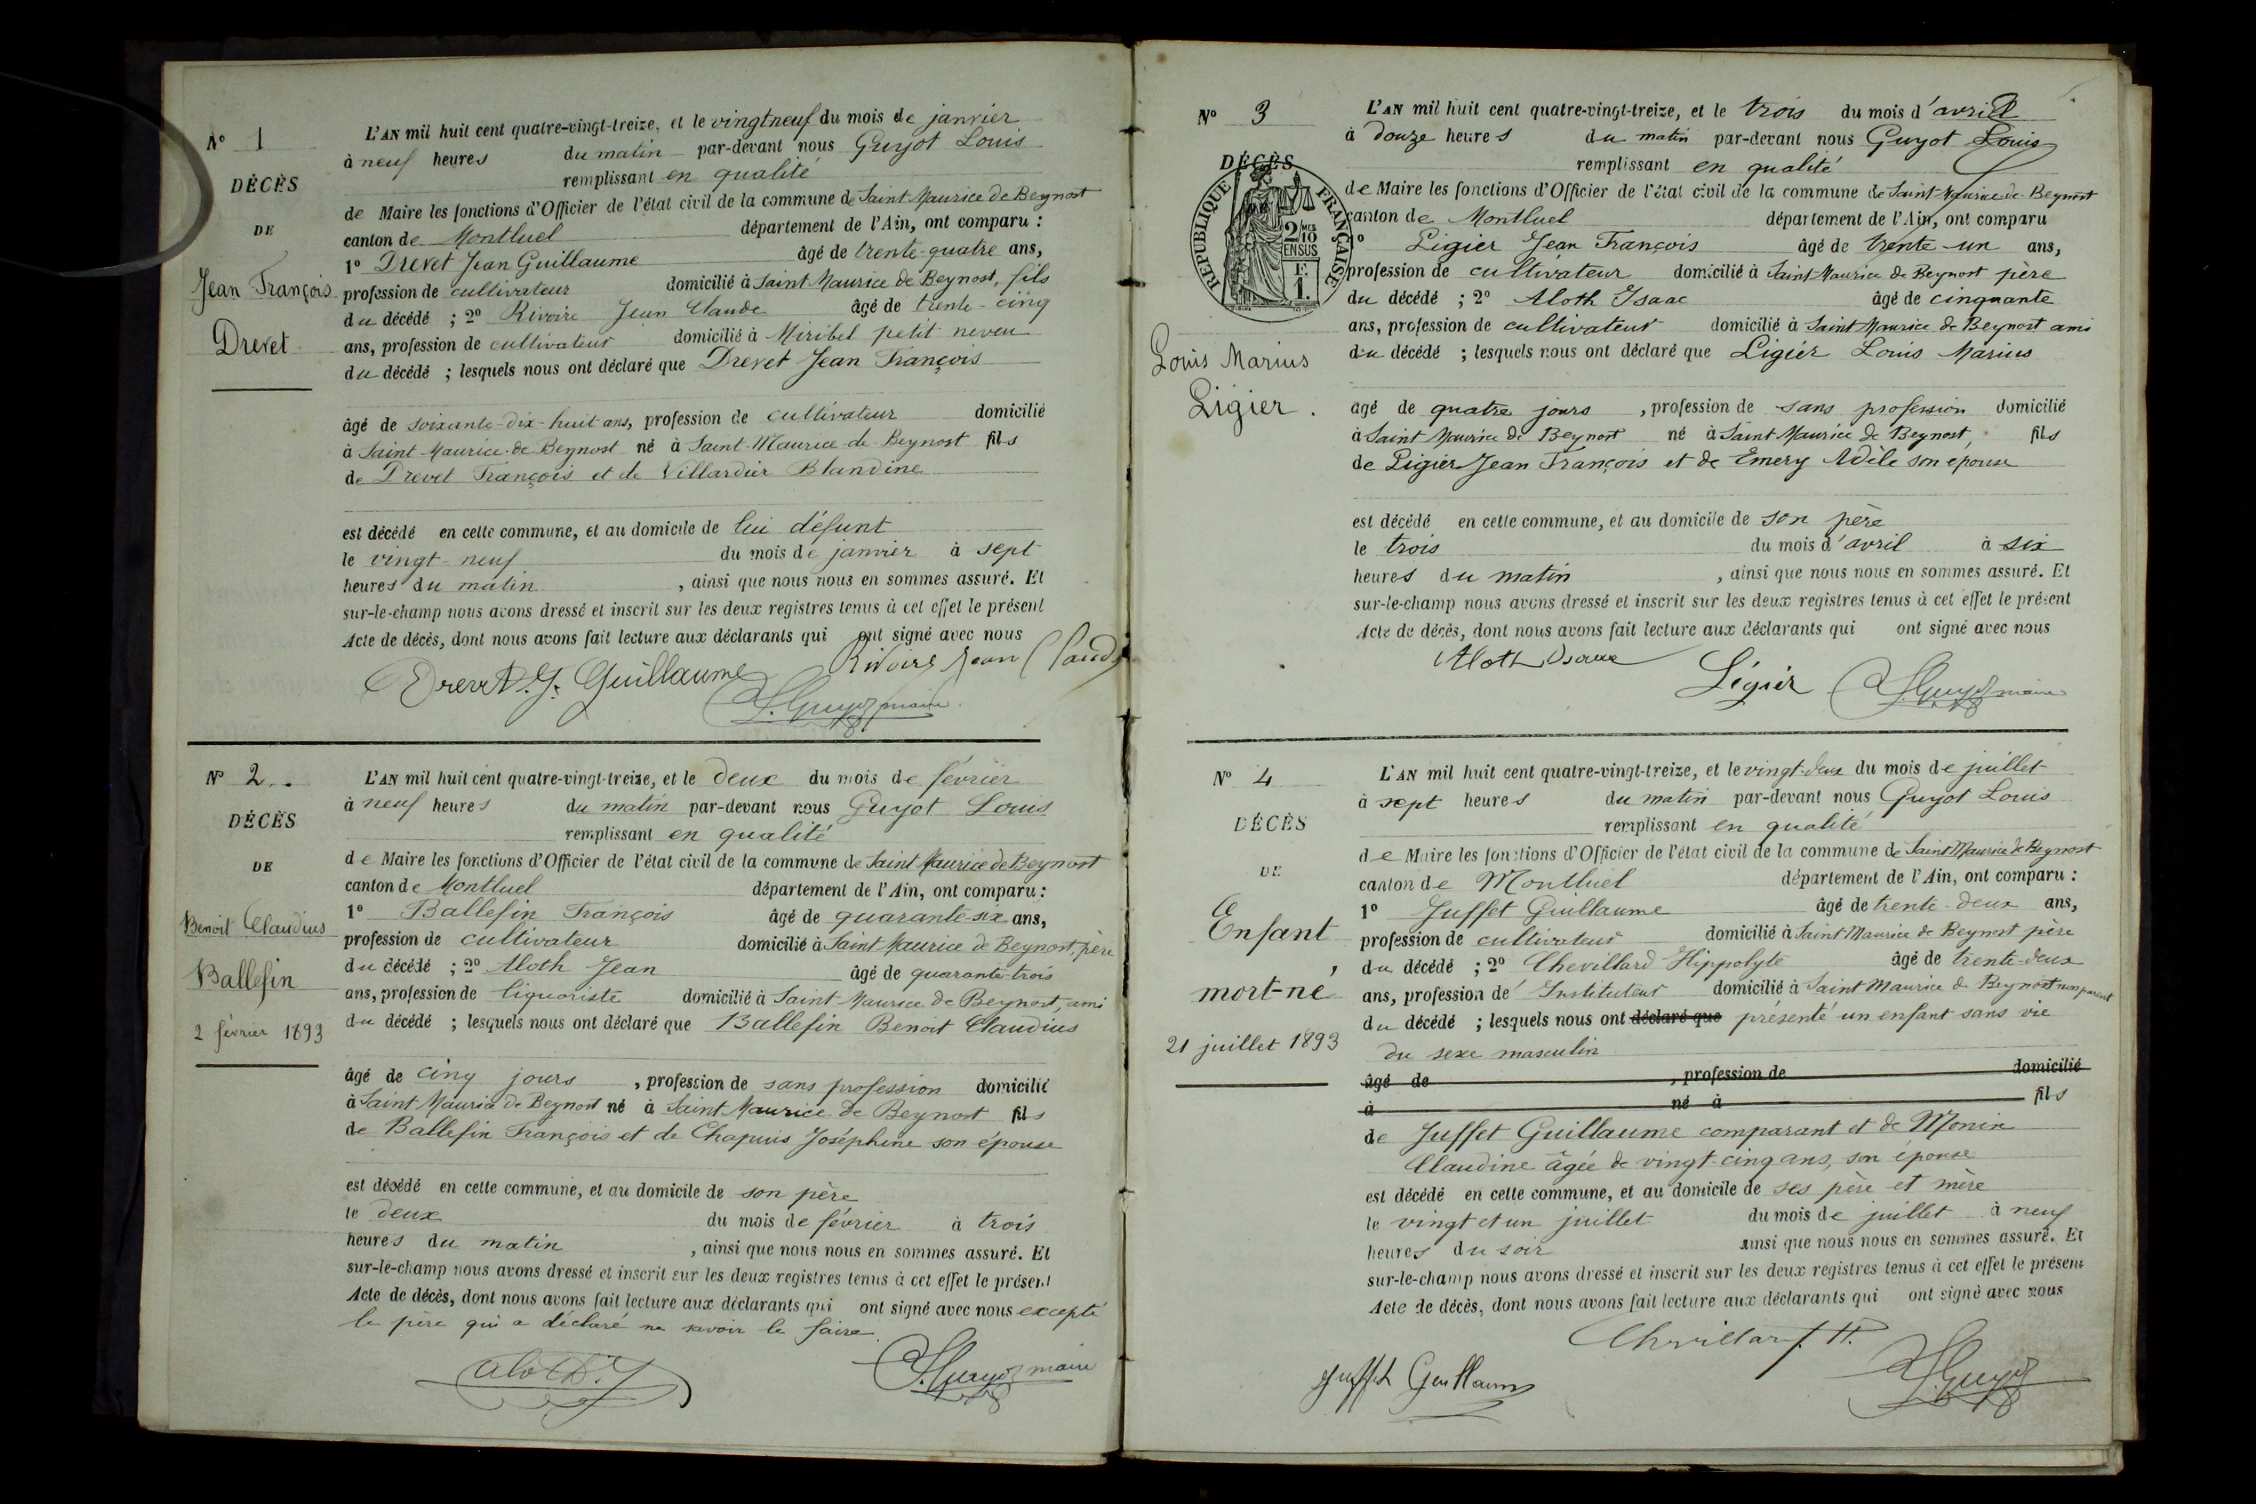 N° 1
DÉCÈS
DE
Jean François
Drevet
L'AN mil huit cent quatre-vingt-treize, et le vingt neuf du mois de janvier
à neuf heures du matin par-devant nous Guyot Louis
remplissant en qualité
de Maire les fonctions d'Officier de l'état civil de la commune de Saint Maurice de Beynost
canton de Montluel département de l'Ain, ont comparu :
1° Drevet Jean Guillaume âgé de trente-quatre ans,
profession de cultivateur domicilié à Saint Maurice de Beynost, fils
du décédé ; 2° Rivoire Jean Claude âgé de trente-cinq
ans, profession de cultivateur domicilié à Miribel petit neveu
du décédé ; lesquels nous ont déclaré que Drevet Jean François
âgé de soixante-dix-huit ans, profession de cultivateur domicilié
à Saint-Maurice-de-Beynost né à Saint-Maurice-de-Beynost fils
de Drevet François et de Villardier Blandine
est décédé en cette commune, et au domicile de lui défunt
le vingt-neuf du mois de janvier à sept
heures du matin , ainsi que nous nous en sommes assuré. Et
sur-le-champ nous avons dressé et inscrit sur les deux registres tenus à cet effet le présent
Acte de décès, dont nous avons fait lecture aux déclarants qui ont signé avec nous
Drevet J. Guillaume Rivoire Jean Claude
L. Guyot maire
N° 2
DÉCÈS
DE
Benoit Claudius
Ballefin
2 février 1893
L'AN mil huit cent quatre-vingt-treize, et le deux du mois de février
à neuf heures du matin par-devant nous Guyot Louis
remplissant en qualité
de Maire les fonctions d'Officier de l'état civil de la commune de Saint Maurice de Beynost
canton de Montluel département de l'Ain, ont comparu :
1° Ballefin François âgé de quarante-six ans,
profession de cultivateur domicilié à Saint Maurice de Beynost, père
du décédé ; 2° Aloth Jean âgé de quarante-trois
ans, profession de liquoriste domicilié à Saint Maurice de Beynost, ami
du décédé ; lesquels nous ont déclaré que Ballefin Benoit Claudius
âgé de cinq jours , profession de sans profession domicilié
à Saint Maurice de Beynost né à Saint-Maurice de Beynost fils
de Ballefin François et de Chapuis Joséphine son épouse
est décédé en cette commune, et au domicile de son père
le deux du mois de février à trois
heures du matin , ainsi que nous nous en sommes assuré. Et
sur-le-champ nous avons dressé et inscrit sur les deux registres tenus à cet effet le présent
Acte de décès, dont nous avons fait lecture aux déclarants qui ont signé avec nous excepté
le père qui a déclaré ne savoir le faire.
Aloth J. L. Guyot maire
N° 3
DÉCÈS
RÉPUBLIQUE FRANÇAISE
2 MES 10
EN SUS
F.
1.
Louis Marius
Ligier.
L'AN mil huit cent quatre-vingt-treize, et le trois du mois d'avril
à douze heures du matin par-devant nous Guyot Louis
remplissant en qualité
de Maire les fonctions d'Officier de l'état civil de la commune de Saint-Maurice-de-Beynost
canton de Montluel département de l'Ain, ont comparu
1° Ligier Jean François âgé de trente-un ans,
profession de cultivateur domicilié à Saint-Maurice de Beynost père
du décédé ; 2° Aloth Isaac âgé de cinquante
ans, profession de cultivateur domicilié à Saint Maurice de Beynost ami
du décédé ; lesquels nous ont déclaré que Ligier Louis Marius
âgé de quatre jours , profession de sans profession domicilié
à Saint Maurice de Beynost né à Saint-Maurice de Beynost, fils
de Ligier Jean François et de Emery Adèle son épouse
est décédé en cette commune, et au domicile de son père
le trois du mois d'avril à six
heures du matin , ainsi que nous nous en sommes assuré. Et
sur-le-champ nous avons dressé et inscrit sur les deux registres tenus à cet effet le présent
Acte de décès, dont nous avons fait lecture aux déclarants qui ont signé avec nous
Aloth Isaac Légier L. Guyot maire
N° 4
DÉCÈS
DE
Enfant
mort-né
21 juillet 1893
L'AN mil huit cent quatre-vingt-treize, et le vingt-deux du mois de juillet
à sept heures du matin par-devant nous Guyot Louis
remplissant en qualité
de Maire les fonctions d'Officier de l'état civil de la commune de Saint Maurice de Beynost
canton de Montluel département de l'Ain, ont comparu :
1° Juffet Guillaume âgé de trente-deux ans,
profession de cultivateur domicilié à Saint Maurice de Beynost père
du décédé ; 2° Chevillard Hippolyte âgé de trente-deux
ans, profession de Instituteur domicilié à Saint Maurice de Beynost non parent
du décédé ; lesquels nous ont déclaré que présenté un enfant sans vie
du sexe masculin
âgé de , profession de domicilié
à né à fils
de Juffet Guillaume comparant et de Monin
Claudine âgée de vingt-cinq ans, son épouse
est décédé en cette commune, et au domicile de ses père et mère
le vingt et un juillet du mois de juillet à neuf
heures du soir ainsi que nous nous en sommes assuré. Et
sur-le-champ nous avons dressé et inscrit sur les deux registres tenus à cet effet le présent
Acte de décès, dont nous avons fait lecture aux déclarants qui ont signé avec nous
Chevillard H.
Juffet Guillaume L. Guyot